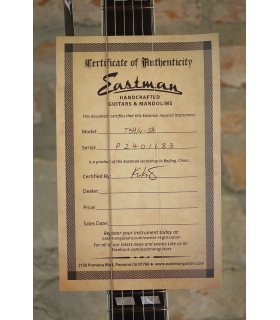 Certificate of Authenticity
Eastman
HANDCRAFTED
GUITARS & MANDOLINS
This document certifies that this Eastman musical instrument:
Model: T59/v-SB
Serial: P2401683
is a product of the Eastman workshop in Beijing, China.
Certified By:
Dealer:
Price:
Sales Date:
Register your instrument today at:
eastmanguitars.com/owner-registration
For all of our latest news and events Like us at:
facebook.com/eastmanguitars
2158 Pomona Blvd. Pomona CA 91768 www.eastmanguitars.com